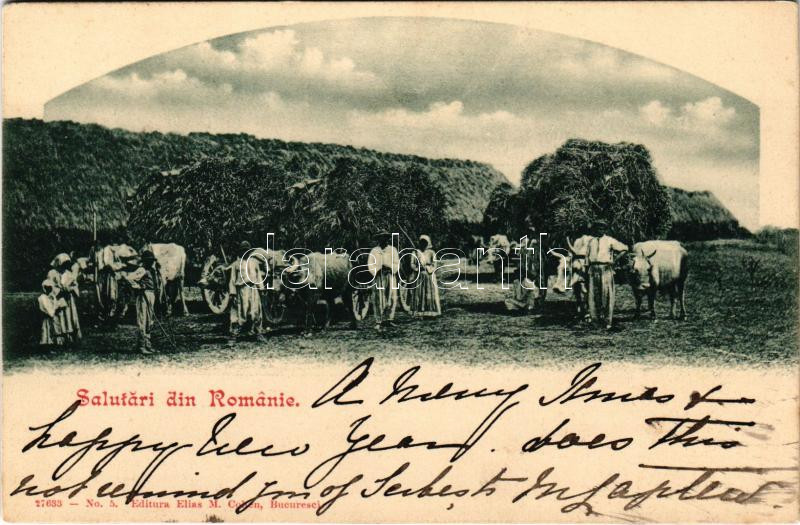 darabanth
Salutări din România.
A Merry Xmas &
happy New Year. does this
not remind you of
27633 – No. 5. Editura Elias M. Cohen, Bucuresci